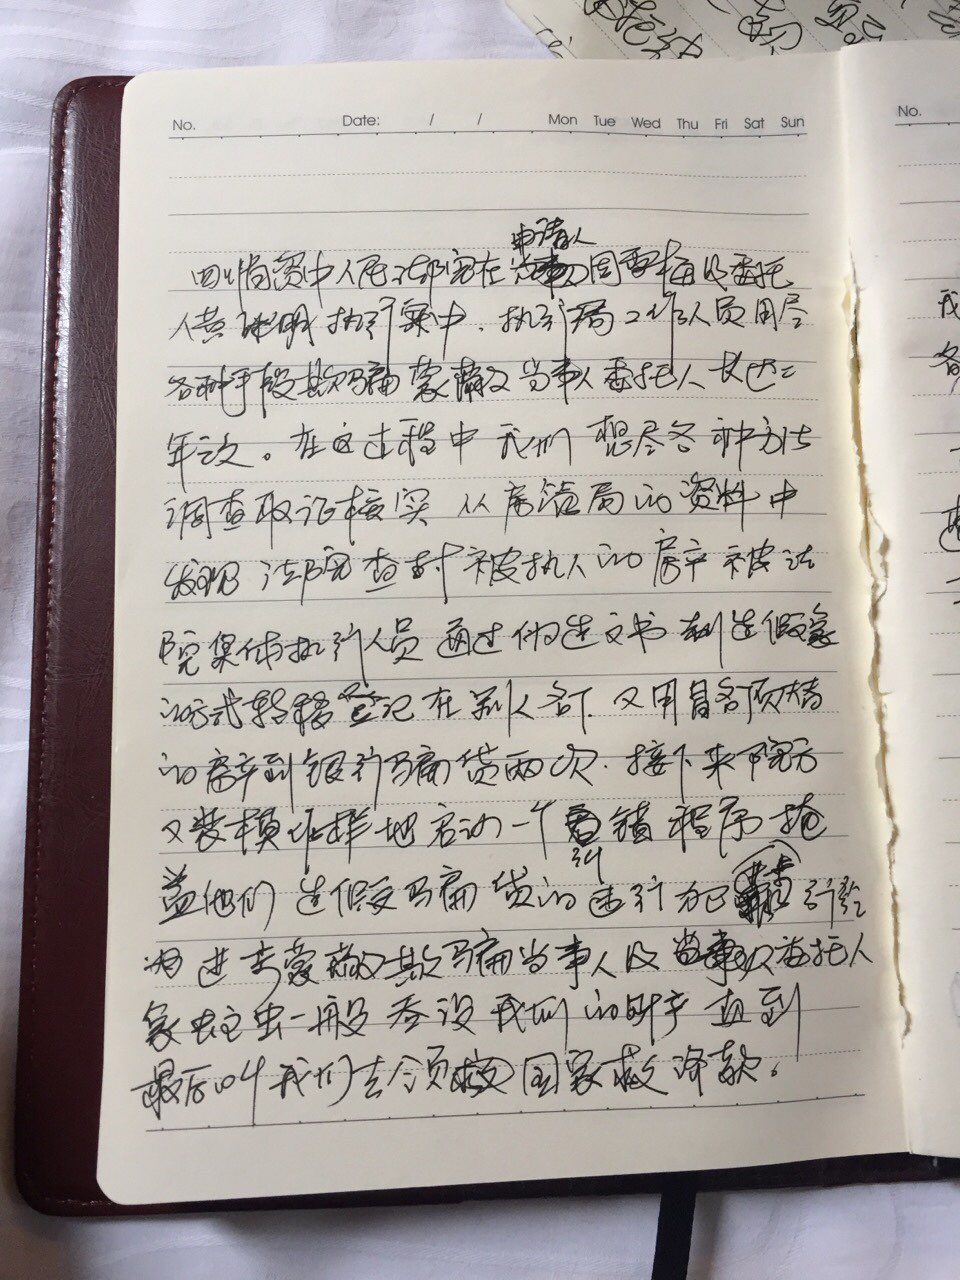 No. Date: / / Mon Tue Wed Thu Fri Sat Sun
No.
申请人
四川省资中人民法院在周雪梅及委托
人黄 执行案中.执行局工作人员用尽
各种手段欺骗蒙蔽当事人委托人长达二
年之久。在这过程中我们想尽各种方法
调查取证核实 从房管局的资料中
发现法院查封被执人的房产被法
院集体执行人员通过伪造文书制造假象
的方式转移登记在别人名下.又用冒名顶替
的房产到银行骗贷两次.接下来中院方
又装模作样地启动一个纠错程序掩
盖他们造假骗贷的违行为
进 蒙蔽欺骗当事人及委托人
象蛀虫一般吞没我们的财产直到
最后叫我们去领国家救济款。
我
各